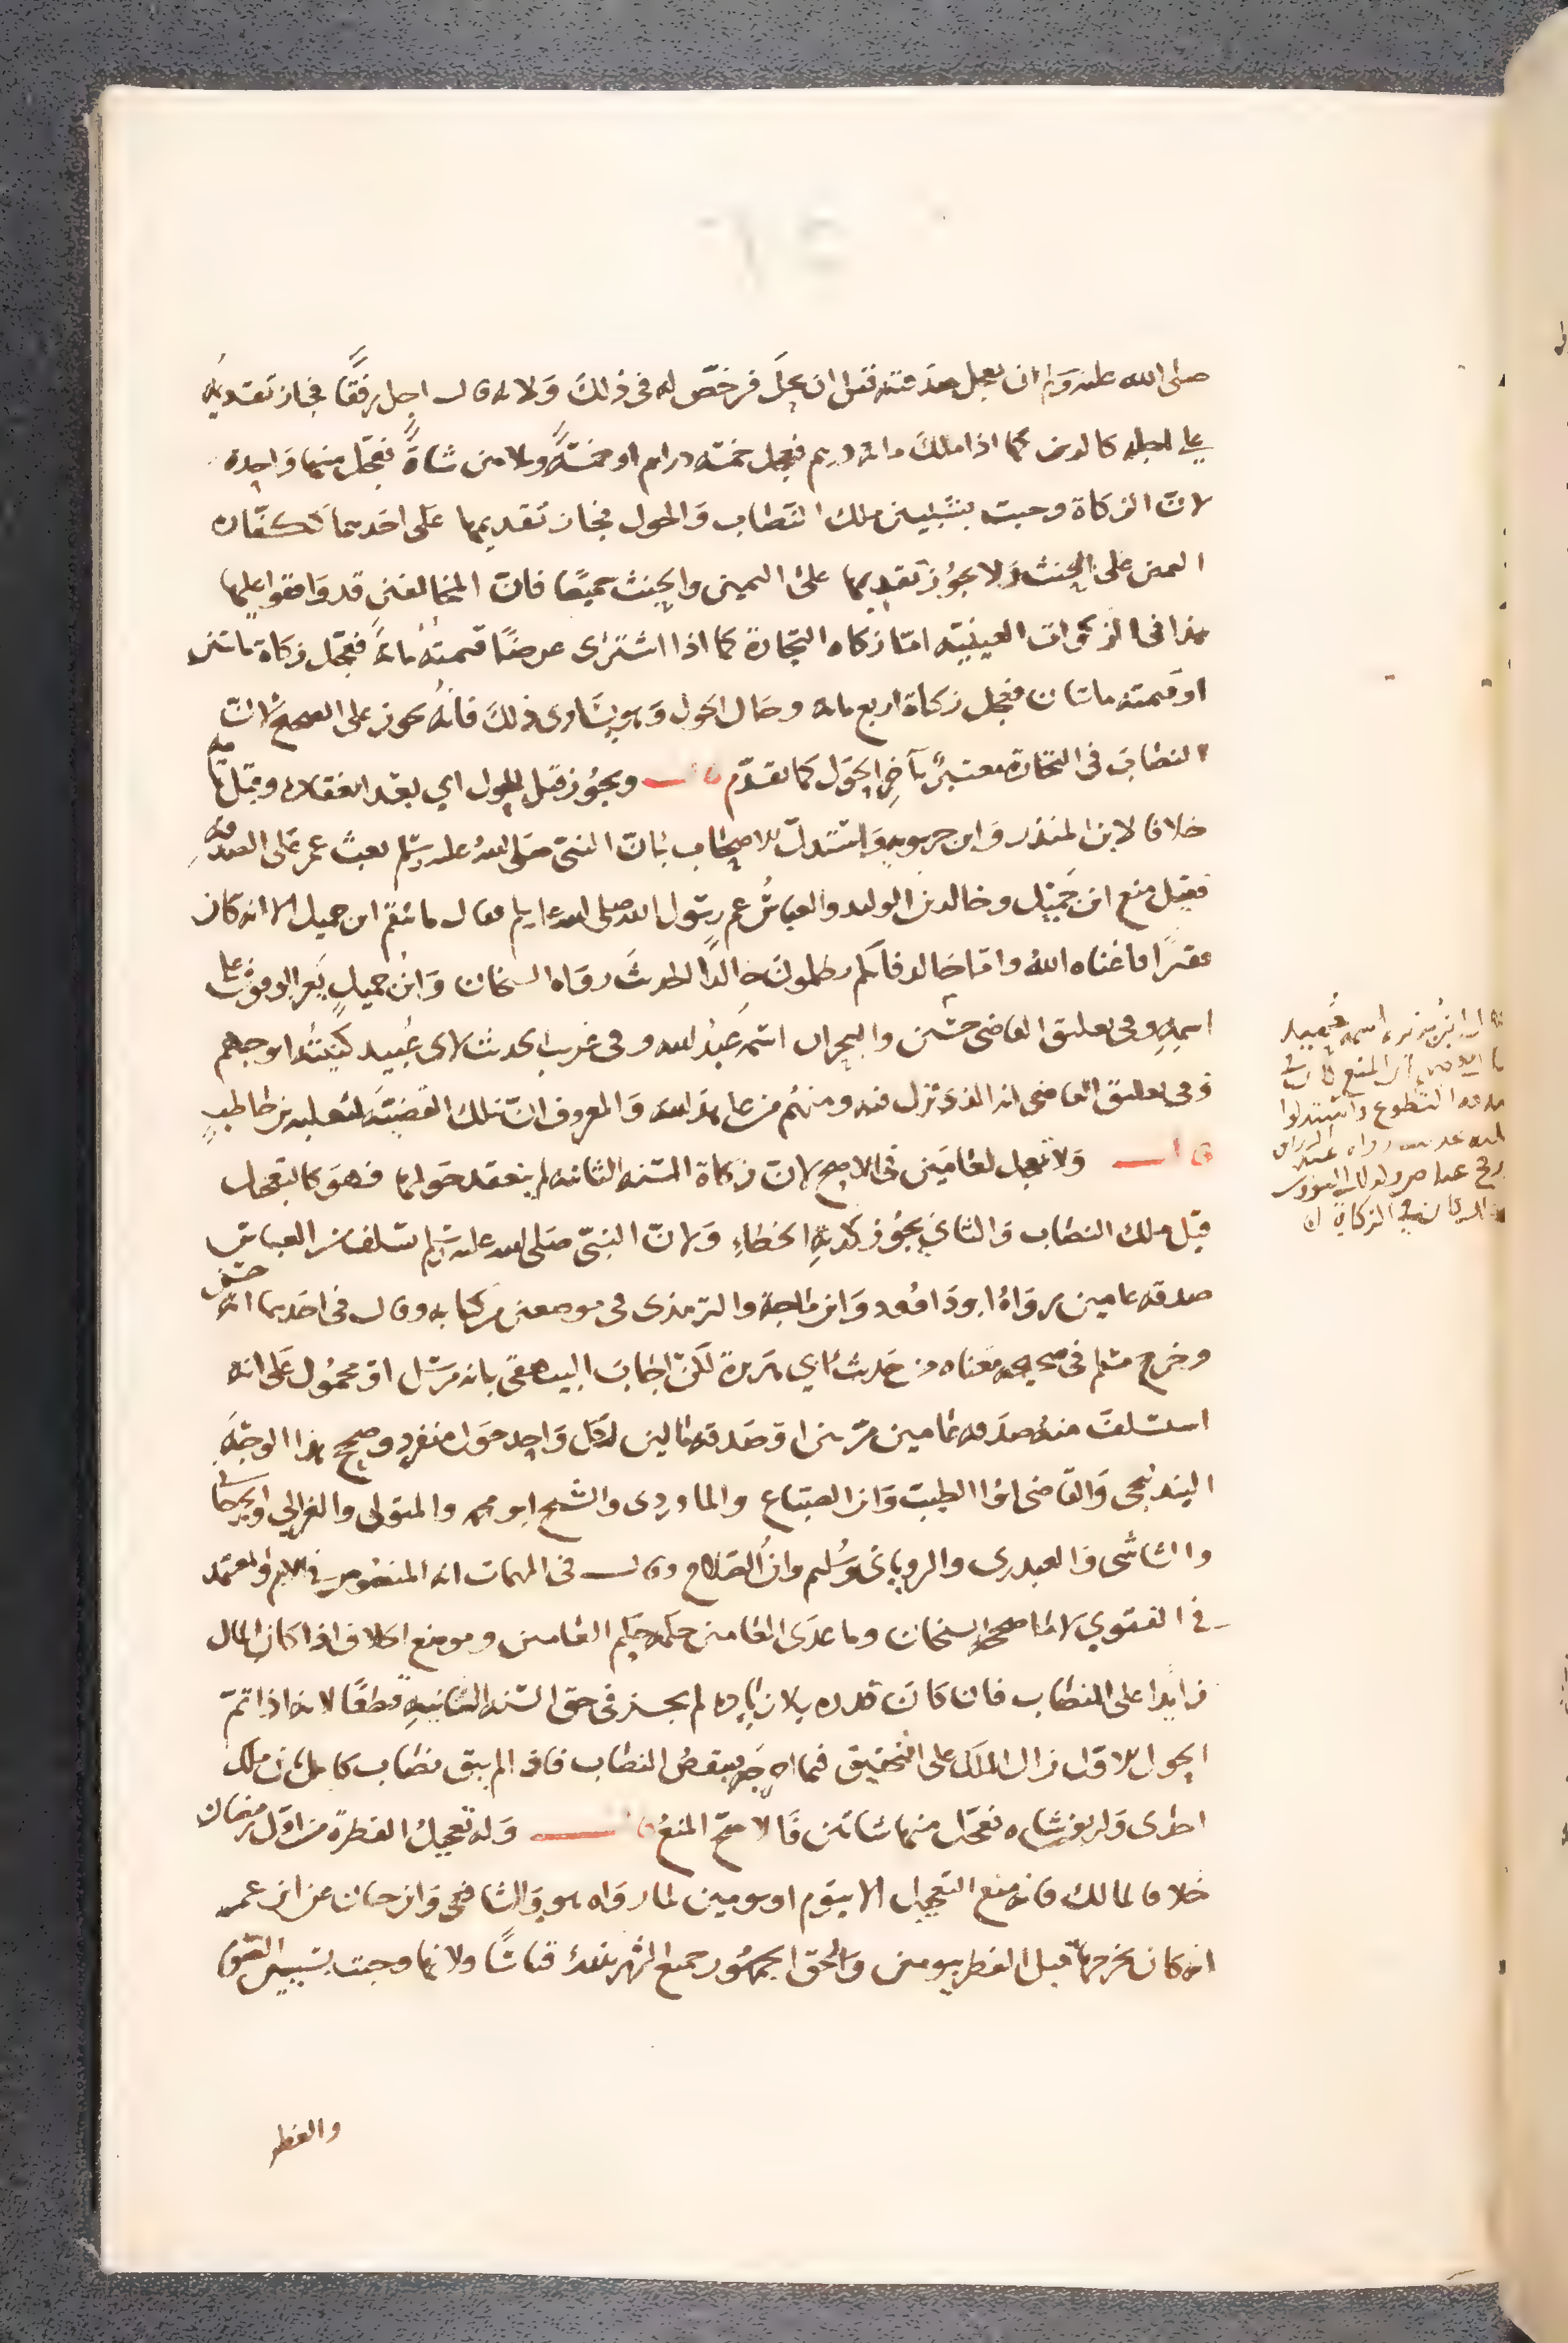 صلى الله عليه وسلم ان يعجل صدقته قبل ان تحل فرخص له في ذلك ولانه قال اجل رفقا فجاز تقديمه
على اجله كالدين كما اذا ملك مائتي درهم فعجل خمسة دراهم او خمسة وثلاثين شاة فعجل منها واحدة
لان الزكاة وجبت بسببين ملك النصاب والحول فجاز تقديمها على احدهما ككفارة
اليمين على الحنث ولا يجوز تقديمها على اليمين والحنث جميعا فان المخالفين قد وافقوا عليها
هذا في الزكوات العينية اما زكاة التجارة كما اذا اشترى عرضا قيمته مائة فعجل زكاة مائتين
او قيمته مائتان فعجل زكاة اربع مائة وحال الحول وهو يساوي ذلك فانه يجوز على الصحيح لان
النصاب في التجارة معتبر بآخر الحول كما تقدم قال ويجوز قبل الحول اي بعد انعقاده وقبل تمامه
خلافا لابن المنذر وابن حربويه واستدل الاصحاب بان النبي صلى الله عليه وسلم بعث عمر على الصدقة
فقيل منع ابن جميل وخالد بن الوليد والعباس عم رسول الله صلى الله عليه وسلم فقال ما ينقم ابن جميل الا انه كان
فقيرا فاغناه الله واما خالد فانكم تظلمون خالدا الحديث رواه الشيخان وابن جميل لم يقفوا على
اسمه وفي تعليق القاضي حسين والبحر ان اسمه عبد الله وفي غريب الحديث لابي عبيد كنيته ابو جهم
وفي تعليق القاضي انه الذي نزل فيه ومنهم من عاهد الله والمعروف ان تلك القضية لثعلبة بن حاطب
قال ولا تعجل لعامين في الاصح لان زكاة السنة الثانية لم ينعقد حولها فهو كالتعجيل
قبل ملك النصاب والثاني يجوز كدية الخطاء ولان النبي صلى الله عليه وسلم تسلف من العباس
صدقة عامين رواه ابو داوود وابن ماجة والترمذي في موضعين من كتابه وقال في احدهما انه حسن
وخرج مسلم في صحيحه معناه من حديث ابي هريرة لكن اجاب البيهقي بانه مرسل او محمول على انه
استسلف منه صدقة عامين مرتين او صدقة مالين لكل واحد حول منفرد وصحح هذا الوجه
البندنيجي والقاضي ابو الطيب وابن الصباغ والماوردي والشيخ ابو محمد والمتولي والغزالي والجرجاني
والشاشي والعبدري والروياني وسليم وابن الصلاح وقال في المهمات انه المنصوص في الام والمعتمد
في الفتوى لا ما صححه الشيخان وما عدى العامين حكمه حكم العامين وموضع الخلاف اذا كان المال
زايدا على النصاب فان كان قدره بلا زيادة لم يجز في حق السنة الثانية قطعا لانه اذا تم
الحول الاول زال الملك على التحقيق فيما اخرجه فينقص النصاب فاذا لم يبق نصاب كامل كمن ملك
احدى واربعين شاة فعجل منها شاتين فالاصح المنع قال وله تعجيل الفطرة من اول رمضان
خلافا لمالك فانه منع التعجيل الا بيوم او يومين لما رواه هو والشافعي وابن حبان عن ابن عمر
انه كان يخرجها قبل الفطر بيومين والحق الجمهور جميع الشهر بذلك قياسا ولانها وجبت بسببين الصوم
والفطر
اسمه حميد
المنع كان في
صدقة التطوع واستدلوا
عليه بحديث رواه عبد الرزاق
في الزكاة